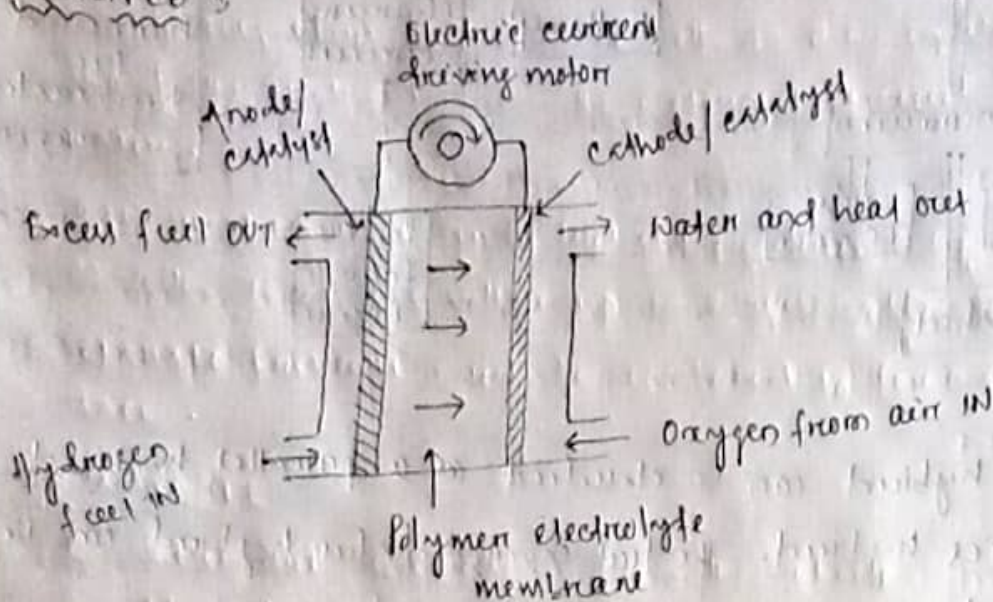 Electric current
driving motor
Anode/
catalyst
Cathode/catalyst
Excess fuel OUT
Water and heat out
Hydrogen
fuel IN
Oxygen from air IN
Polymer electrolyte
membrane